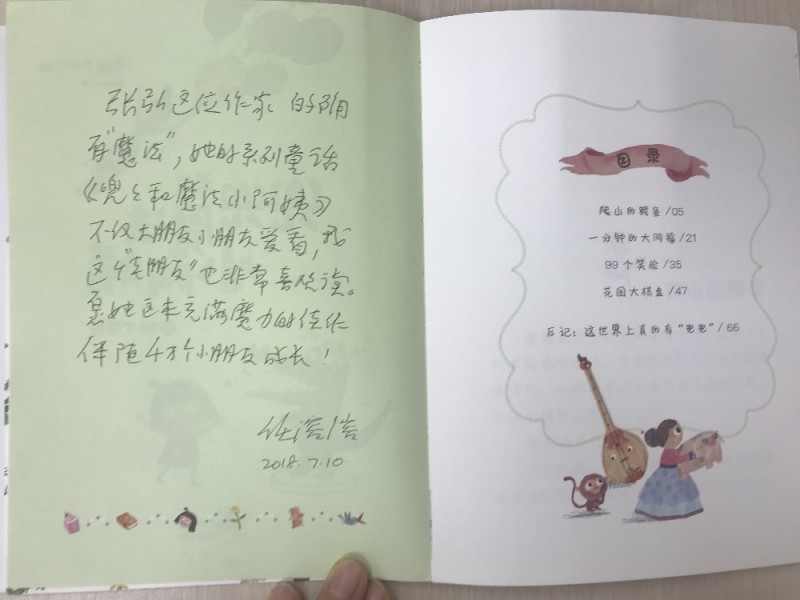 张弘这位作家 的确
有“魔法”，她的系列童话
《兜兜和魔法小阿姨》
不仅大朋友小朋友爱看，我
这个“老朋友”也非常喜欢读。
愿她这本充满魔力的佳作
伴随千万个小朋友成长！
任溶溶
2018.7.10.
目录
爬山的鳄鱼/05
一分钟的大阿福/21
99个笑脸/35
花园大棋盘/47
后记：这世界上真的有“兜兜”/66